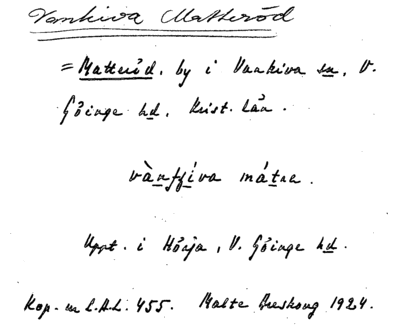 Vankiva Matteröd
= Matteröd, by i Vankiva sn, V.
Göinge hd, Krist. län.
vànfʃiva mátae.
Uppt. i Hörja, V. Göinge hd.
Kop. ur L.A.L. 455. Malte Areskoug 1924.